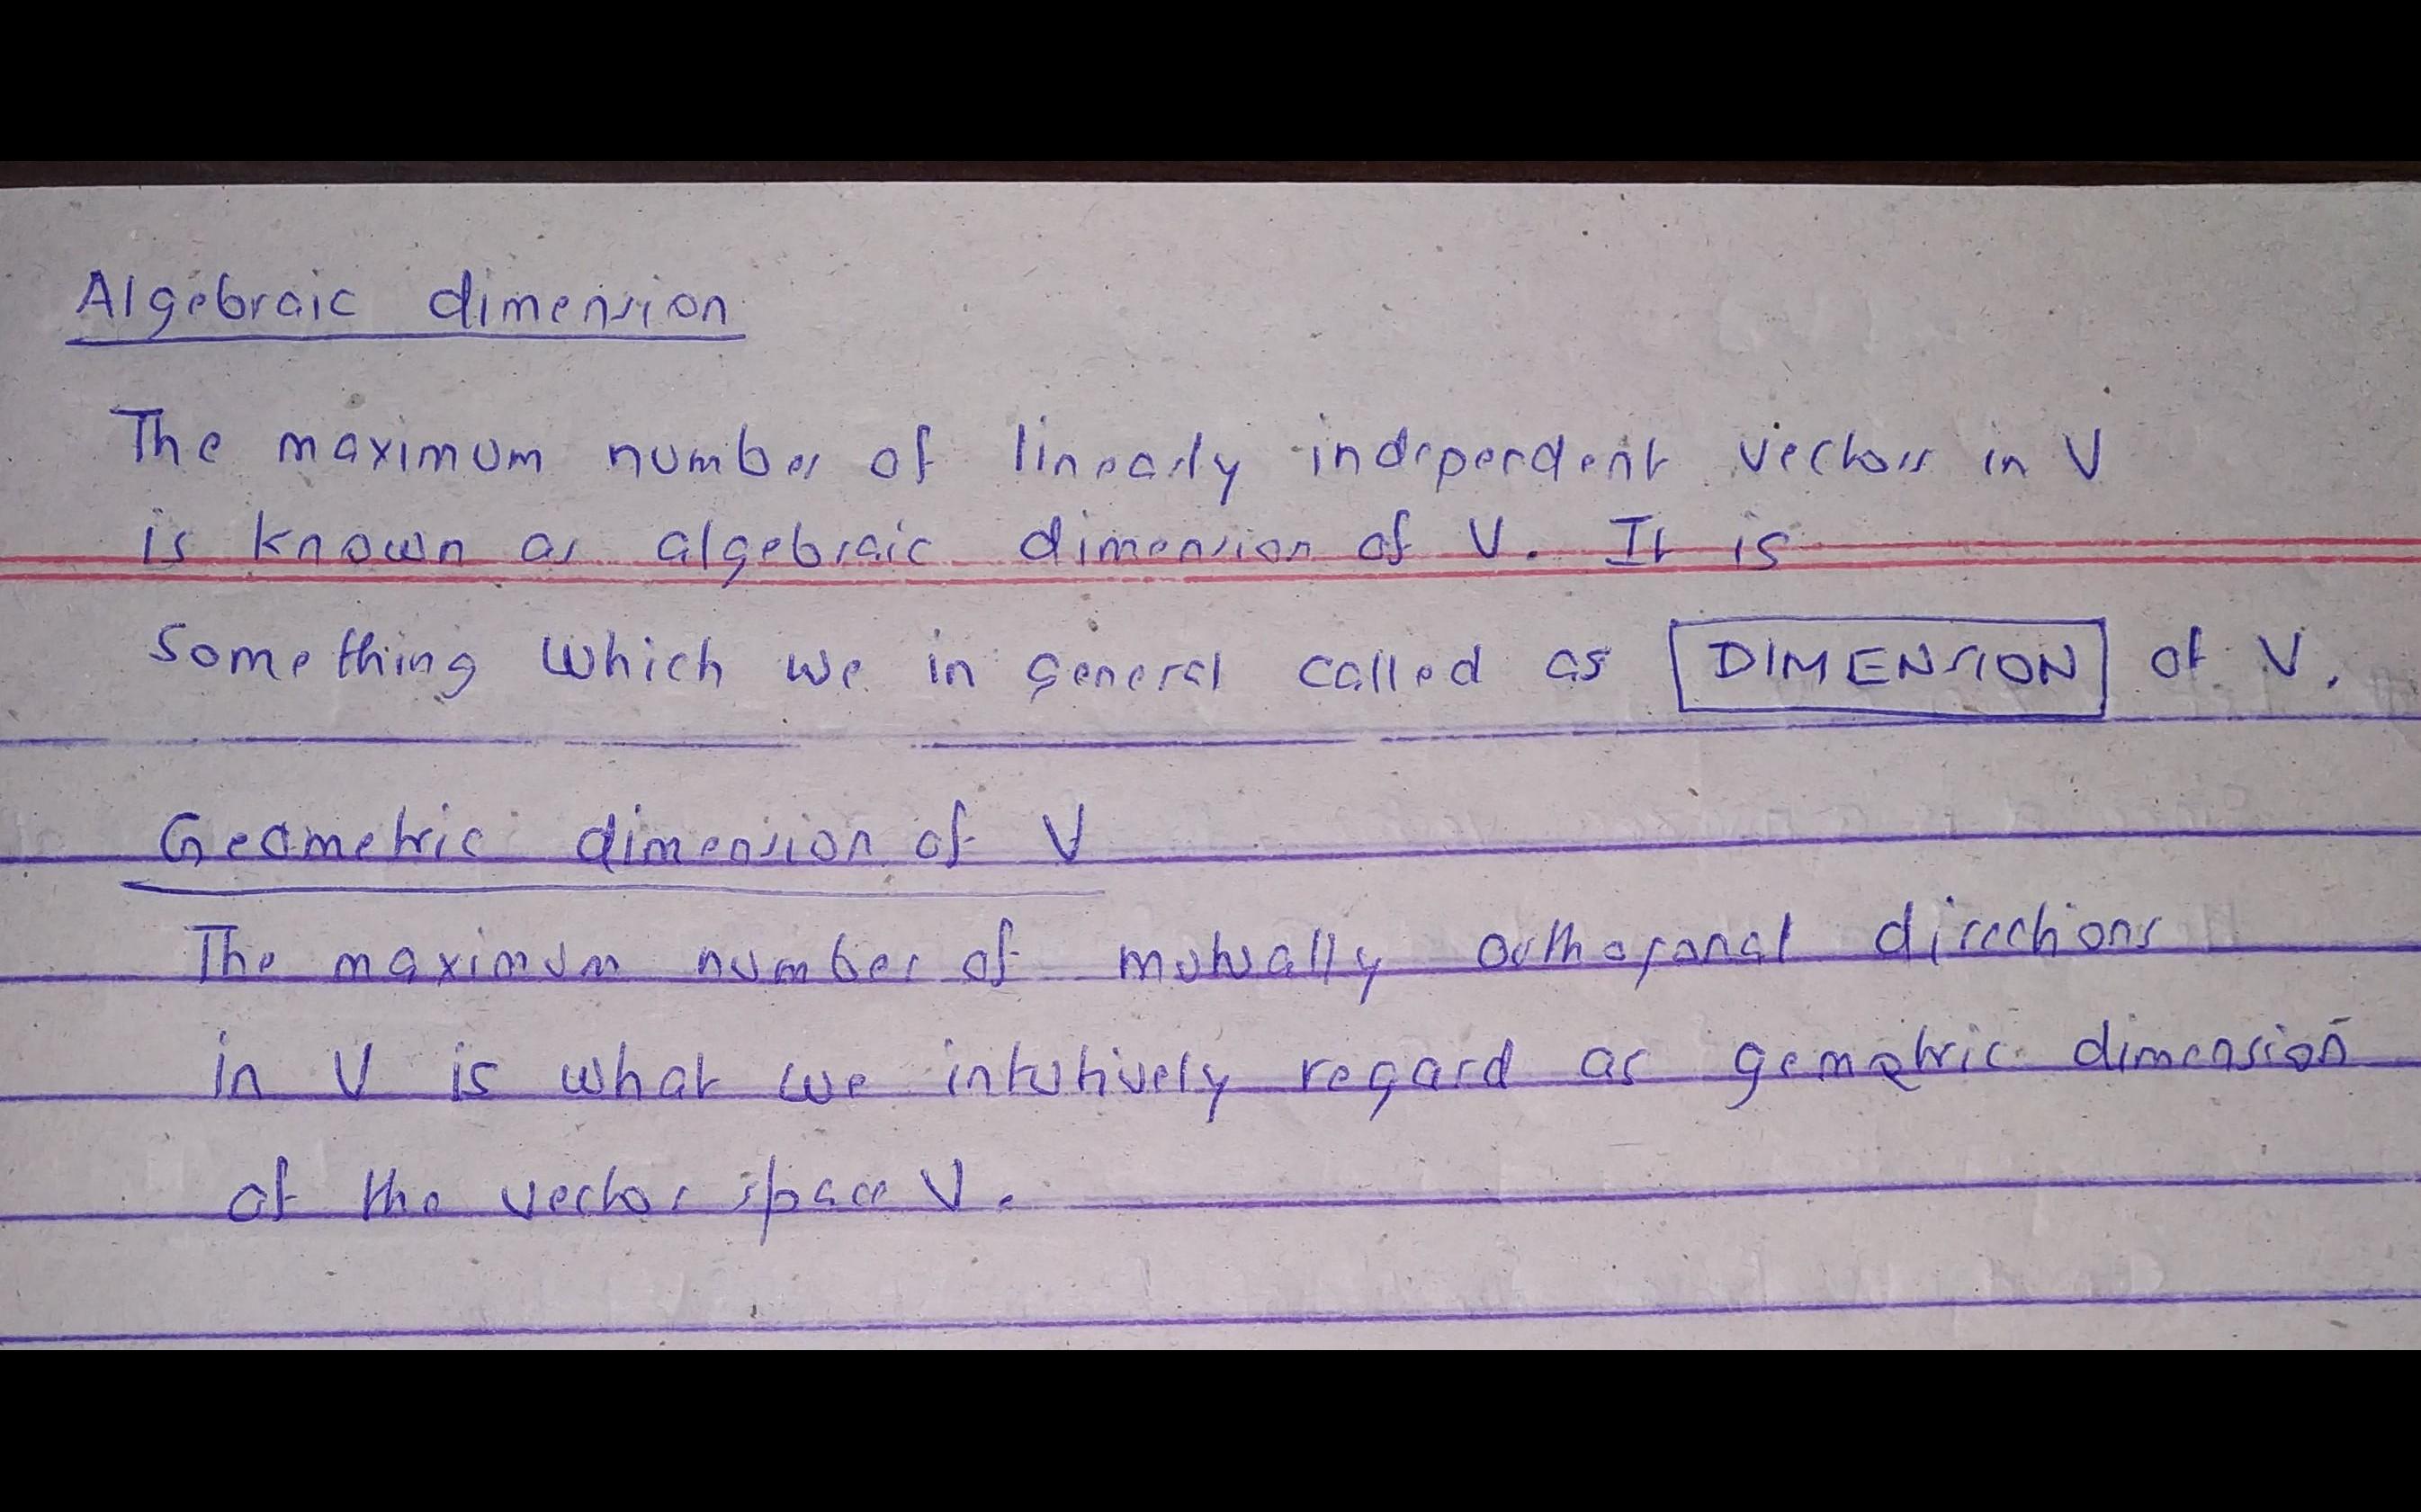 Algebraic dimension
The maximum number of linearly independent vectors in V
is known as algebraic dimension of V. It is
Something which we in general called as DIMENSION of V.
Geometric dimension of V
The maximum number of mutually orthogonal directions
in V is what we intutively regard as gemetric dimension
of the vector space V.